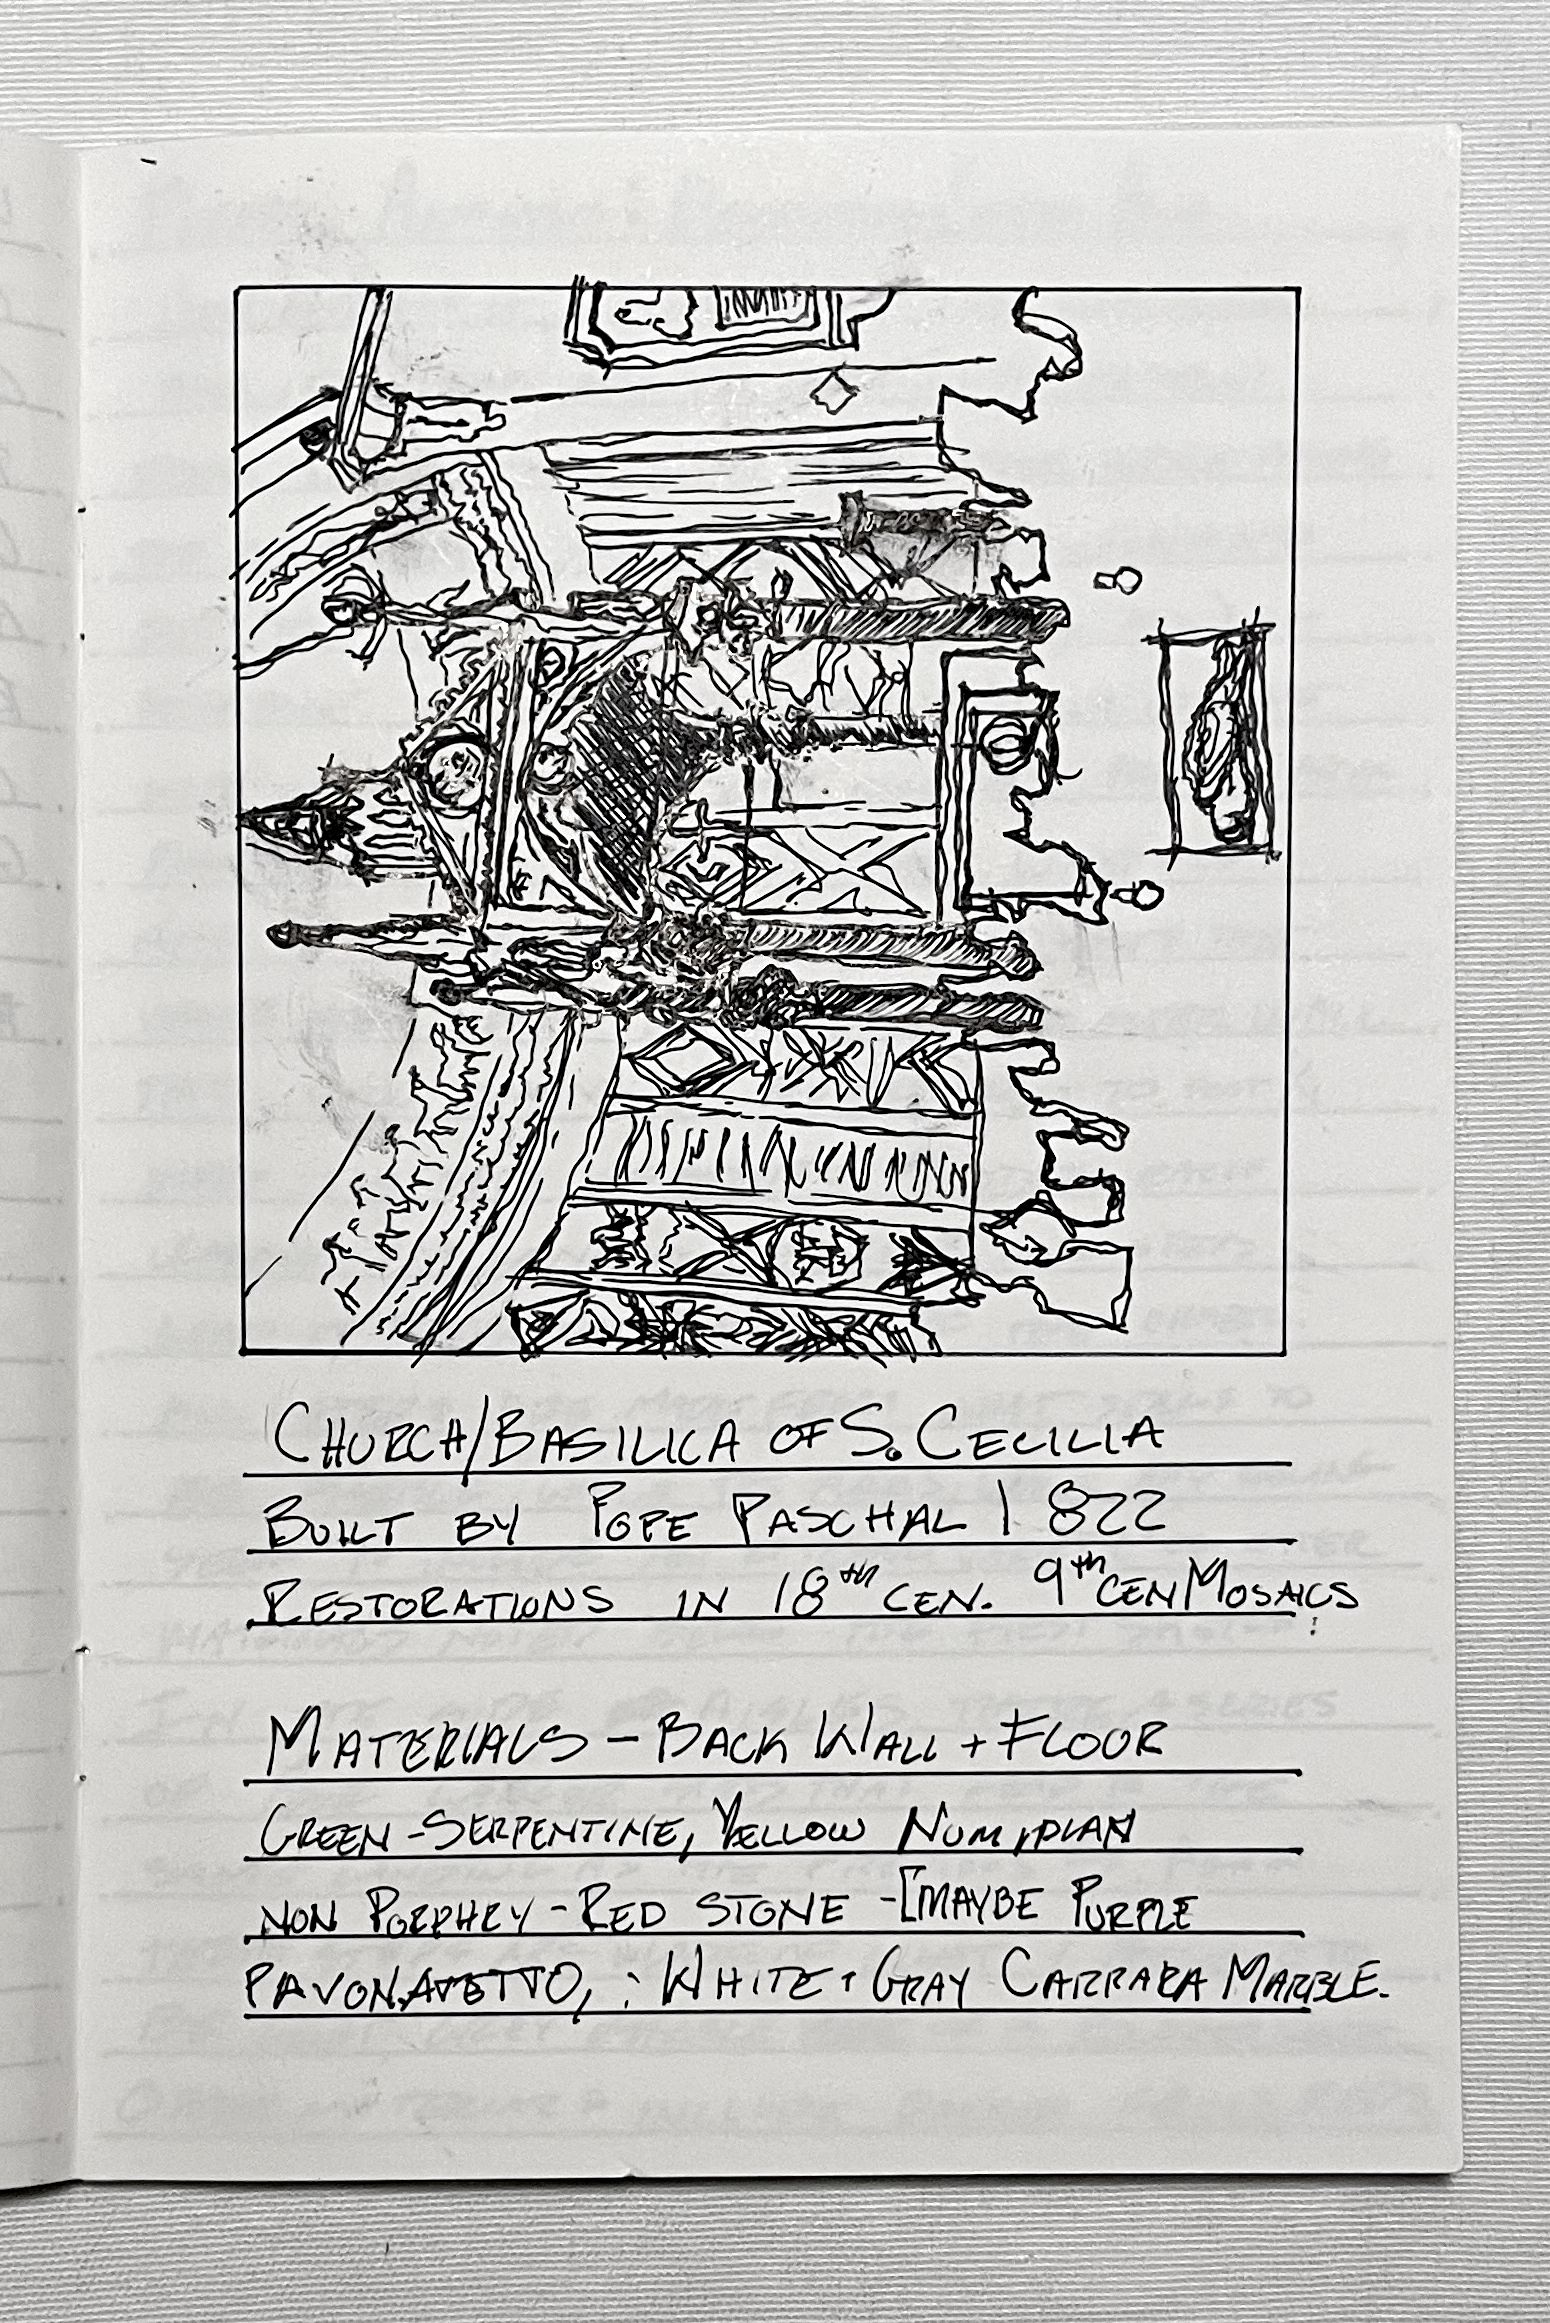 CHURCH/BASILICA OF S. CECILIA
BUILT BY POPE PASCHAL I 822
RESTORATIONS IN 18th CEN. 9th CEN MOSAICS
MATERIALS - BACK WALL + FLOOR
GREEN - SERPENTINE, YELLOW NUMIDIAN
NON PORPHRY - RED STONE - [MAYBE PURPLE
PAVONATETTO, : WHITE + GRAY CARRARA MARBLE.